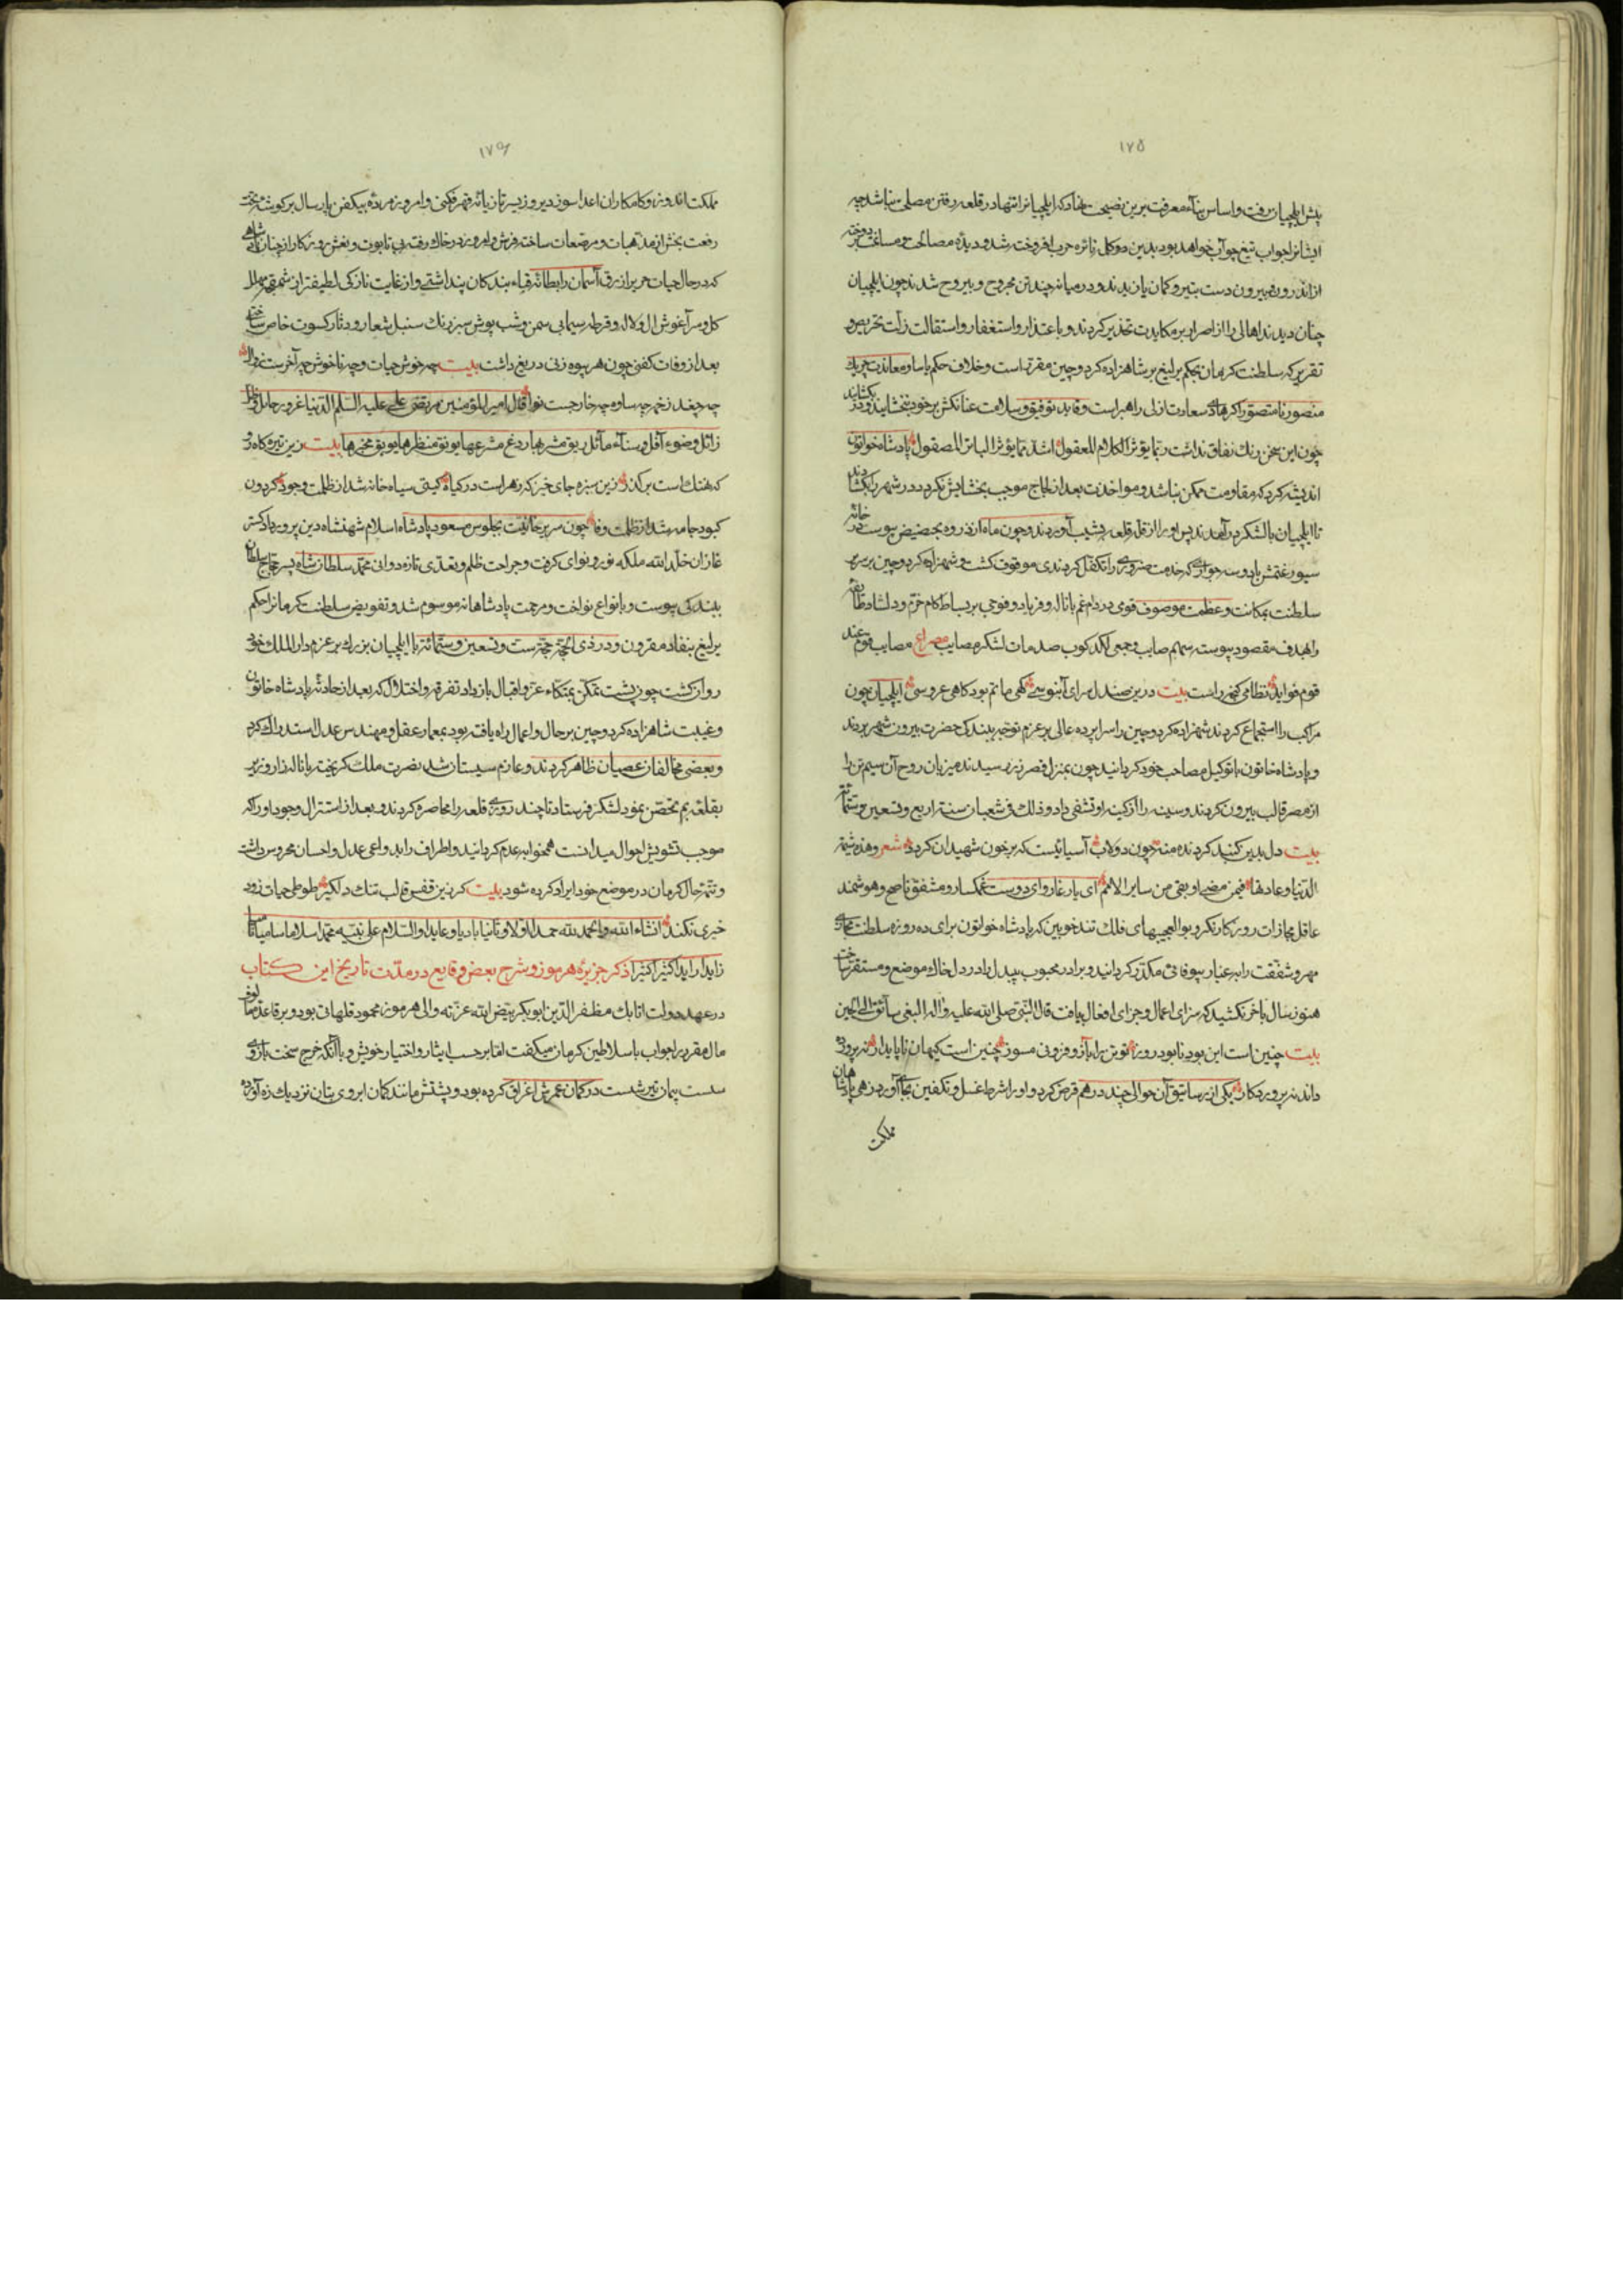 ١٧٥
پیش ایلچیان رفت و اساس بناء معرفت برین نصیحت نهاد که ایلچیانرا تنها در قلعه رفتن مصلحت نباشد چه
ایشانرا جواب تیغ جواب خواهد بود بدین موکل نائره حرب افروخته شد و دیده مصالحت و مسالمت بر دوخته
از اندرون و بیرون دست بتیر و کمان یازیدند و در میانه چند تن مجروح و بیروح شدند چون ایلچیان
چنان دیدند اهالی را از اصرار بر مکابدت تحذیر کردند و باعتذار و استغفار و استقالت زلت تحریض و
تقریر که سلطنت کرمان بحکم یرلیغ بر شاهزاده کردوجین مقررست و خلاف حکم یاسا و معاندت چریک
منصور نامتصور اگر هادی سعادت ازلی راهبر است و قاید توفیق و سلامت عنانکش بر خود ببخشایند و در بگشایند
چون این سخن رنگ نفاق نداشت ربما یؤثر الکلام المعقول اشد مما یؤثر الباتر المصقول پادشاه خواتون
اندیشه کرد که مقاومت ممکن نباشد و مواخذت بعد از لجاج موجب بخشایش نگردد در شهر را بگشادند
تا ایلچیان با لشکر در آمدند پس او را از قلعه بشیب آوردند و چون ماه از ذروه بحضیض پیوست در خانه
سیورغتمش با دو سه جواری که خدمت ضروری را تکفل کردندی موقوف گشت و شهزاده کردوجین بر سریر
سلطنت بمکانت و عظمت موصوف قومی در دام غم با ناله و فریاد و فوجی بر بساط کام خرم و دلشاد طایفه
را هدف مقصود پیوسته سهم صایب و جمعی لگدکوب صدمات لشکر مصایب مصراع مصایب قوم عند
قوم فواید نظامی گنجه راست بیت درین صندل سرای آبنوسی گهی ماتم بود گاهی عروسی ایلچیان چون
مراکب را استجماع کردند شهزاده کردوجین را سراپرده عالی بر عزم توجه ببندگی حضرت بیرون شهر بردند
و پادشاه خاتون با توکیل مصاحب خود گردانید چون بمنزل قصر زرد رسیدند میزبان روح آن سیم تن را
از مصر قالب بیرون کردند و سینه را از کینه او تشفی داد و ذلک فی شعبان سنة اربع و تسعین و ستمائة
بیت دل بدین گنبد گردنده منه چون دولاب آسیائیست که بر خون شهیدان گردد شعر و هذه شیمة
الدنیا و عادتها فیمن مضی او بقی من سایر الامم ای یار غار و ای دوست غمگسار و مشفق ناصح و هوشمند
عاقل مجازات روزگار نگر و بوالعجبیهای فلک تندخو بین که پادشاه خواتون برای ده روزه سلطنت مجازی
مهر و شفقت را به غبار بیوفائی مکدر گردانید و برادر محبوب بیدل را در دل خاک موضع و مستقر ساخت
هنوز سال باخر نکشید که سزای اعمال و جزای افعال بیافت قال النبی صلی الله علیه و اله البغی سائق الی الحین
بیت چنین است این بود نابود روز تو تن را بآز و فزونی مسوز چنین است کیهان ناپایدار نه پرورده
داند نه پروردگار یکی از رساتیق آن حوالی چند درهم قرض کرد و او را شرط غسل و تکفین بجای آورد زهی پادشاهان
مملکت
١٧٦
مملکت اندوز و کامکاران اعدا سوز دیروز بسر تازیانه قهر فکنی و امروز مردهٔ بیکفن پارسال بر گوشه تخت
رفعت بخش از مذهبات و مرصعات ساخته فرش و امروز در خاک رفته بی تابوت و نعش روزگار از چنان شاهی
که در حال حیات حریر ازرق آسمان را بطانه قباء بندگان پنداشتی و از غایت نازکی لطیفتر از
گل و سر آغوش ال و لال و قرطه سیمابی سمن و شب پوش سبز رنگ سنبل شعار و دثار کسوت خاص ساختی
بعد از وفات کفنی چون هر بیوه زنی دریغ داشت بیت چه خوش حیات و چه ناخوش چو آخرست زوال
چه جغد زخم چه ساده چه خارجست نوا قال امیر المؤمنین مرتضی علی علیه السلم الدنیا غرور حایل و ظل
زائل و ضوء آفل و سناء مائل ریق مشربها ردغ مشرعها یونق منظرها یوبق مخبرها بیت زین تیره کاه رو
که هتک است بر گذر زین سبزه جای خیز که زهر است در گیاه گیتی سیاه خانه شد از ظلمت وجود گردون
کبود جامه شد از ظلمت وفا چون سریر خانیت بجلوس مسعود پادشاه اسلام شهنشاه دین پرور دادگستر
غازان خلد الله ملکه نور و نوای گرفت و جراحت ظلم و تعدی تازه دوانی محمد سلطان شاه پسر حجاج سلطان
ببندگی پیوست و بانواع نواخت و مرحمت پادشاهانه موسوم شد و تفویض سلطنت کرمانرا حکم
یرلیغ بنفاد مقرون و در ذی الحجة حجة ست و تسعین و ستمائة با ایلچیان بزرگ بر عزم دار الملک خود
روان گشت چون پشت تمکن بمتکاء عز و اقبال باز داد تفرقه و اختلال که بعد از حادثه پادشاه خاتون
و غیبت شاهزاده کردوجین بر حال و اعمال راه یافته بود بمعمار عقل و مهندس عدل استدراک کرد
و بعضی مخالفان عصیان ظاهر کردند و عازم سیستان شد نصرت ملک گریخته با ناله زار و زیر
بقلعه بم تحصن نمود لشکر فرستاد تا چند روزی قلعه را محاصره کردند و بعد از استنزال وجود او را که
موجب تشویش احوال میدانست همخوابه عدم گردانید و اطراف را بدواعی عدل و احسان محروس داشت
و تتمه حال کرمان در موضع خود ایراد کرده شود بیت گر نیز قفس قالب تنگ دلگیر طوطی حیات زود
خیری نکند انشاء الله و الحمد لله حمدا اولا و ثانیا بادیا و عایدا و السلام علی نبیه محمد اسلاما سامیا نامیا
زایدا راید اکثیرا کثیرا ذکر جزیرهٔ هرموز و شرح بعض وقایع در مدت تاریخ این کتاب
در عهد دولت اتابک مظفر الدین ابوبکر بیض الله عزته والی هرموز محمود قلهاتی بود و بر قاعده مألوف
مال مقرر را جواب با سلاطین کرمان میگفت اما بر حسب ایثار و اختیار خویش و باآنکه خرج سخت بازوی
سست پیمان تیر شست در کمان عمرش اغراق کرده بود و پشتش مانند کمان ابروی بتان نزدیک زه آورده